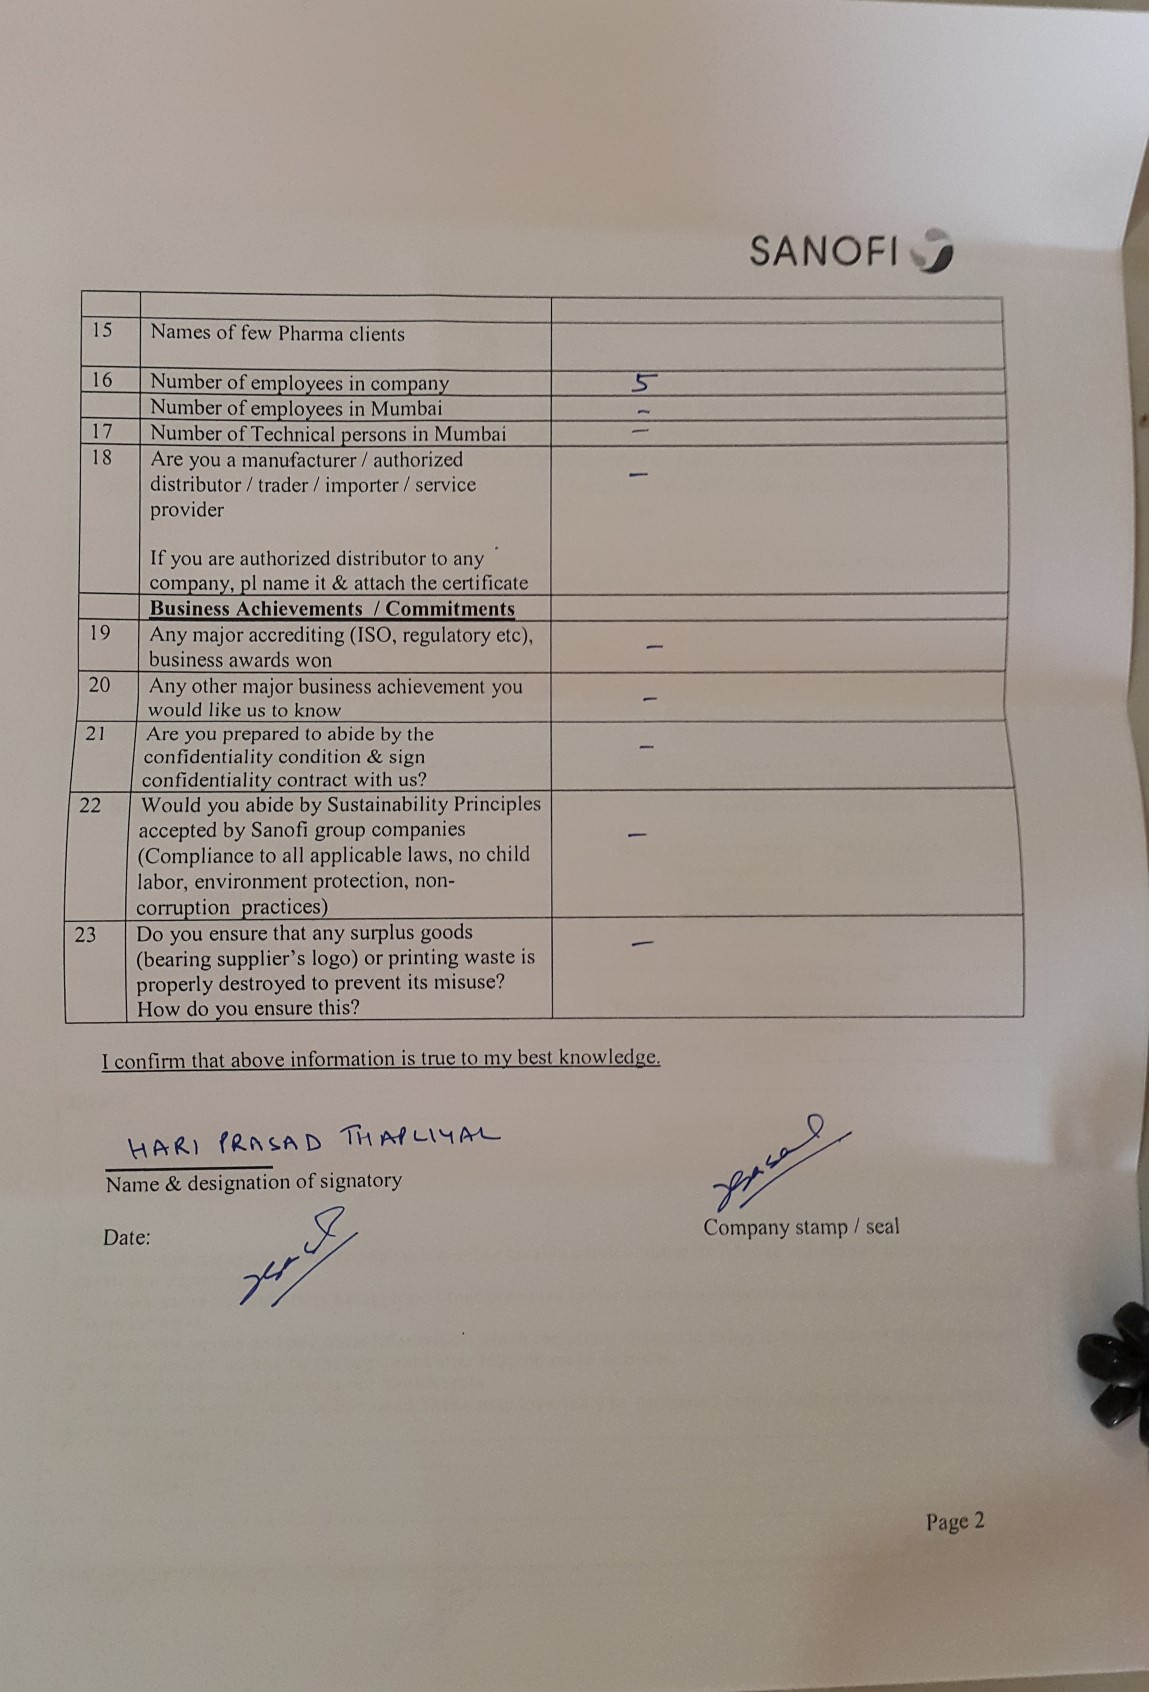 SANOFI
15 Names of few Pharma clients
16 Number of employees in company 5
Number of employees in Mumbai -
17 Number of Technical persons in Mumbai -
18 Are you a manufacturer / authorized -
distributor / trader / importer / service
provider
If you are authorized distributor to any
company, pl name it & attach the certificate
Business Achievements / Commitments
19 Any major accrediting (ISO, regulatory etc), -
business awards won
20 Any other major business achievement you -
would like us to know
21 Are you prepared to abide by the -
confidentiality condition & sign
confidentiality contract with us?
22 Would you abide by Sustainability Principles
accepted by Sanofi group companies -
(Compliance to all applicable laws, no child
labor, environment protection, non-
corruption practices)
23 Do you ensure that any surplus goods -
(bearing supplier's logo) or printing waste is
properly destroyed to prevent its misuse?
How do you ensure this?
I confirm that above information is true to my best knowledge.
HARI PRASAD THAPLIYAL
Name & designation of signatory
Company stamp / seal
Date:
Page 2